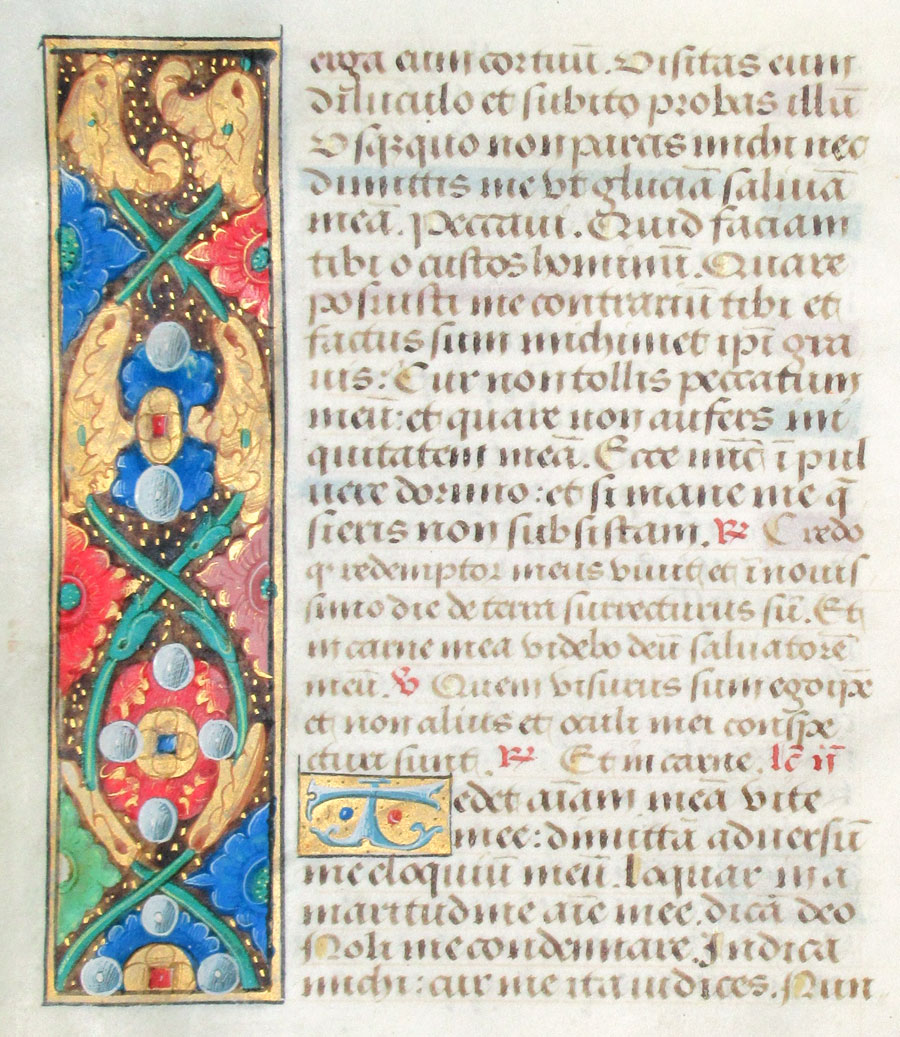 erga eum cortuū. Visitas eum
diluculo et subito probas illū
Vsqꝫquo non parcis michi nec
dimittis me vt gluciā saliuā
meā. Peccaui. Quid faciam
tibi o custos hominū. Quare
posuisti me contrariū tibi et
factus sum michimet ipī gra
uis: Cur non tollis peccatum
meū: et quare non aufers ini
quitatem meā. Ecce nūc ī pul
uere dormio: et si mane me q̄
sieris non subsistam. ℟ Credo
qꝫ redemptor meus viuit et ī nouis
simo die de terra surrecturus sū. Et
in carne mea videbo deū saluatorē
meū. ℣ Quem visurus sum ego ip̄e
et non alius et oculi mei conspe
cturi sunt. ℟ Et in carne. lc̄ ii
Tedet aīam meā vite
mee: dimittā aduersū
me eloquiū meū. loquar in a
maritudine aīe mee. dicā deo
Noli me condennare. Indica
michi: cur me ita iudices. Nun